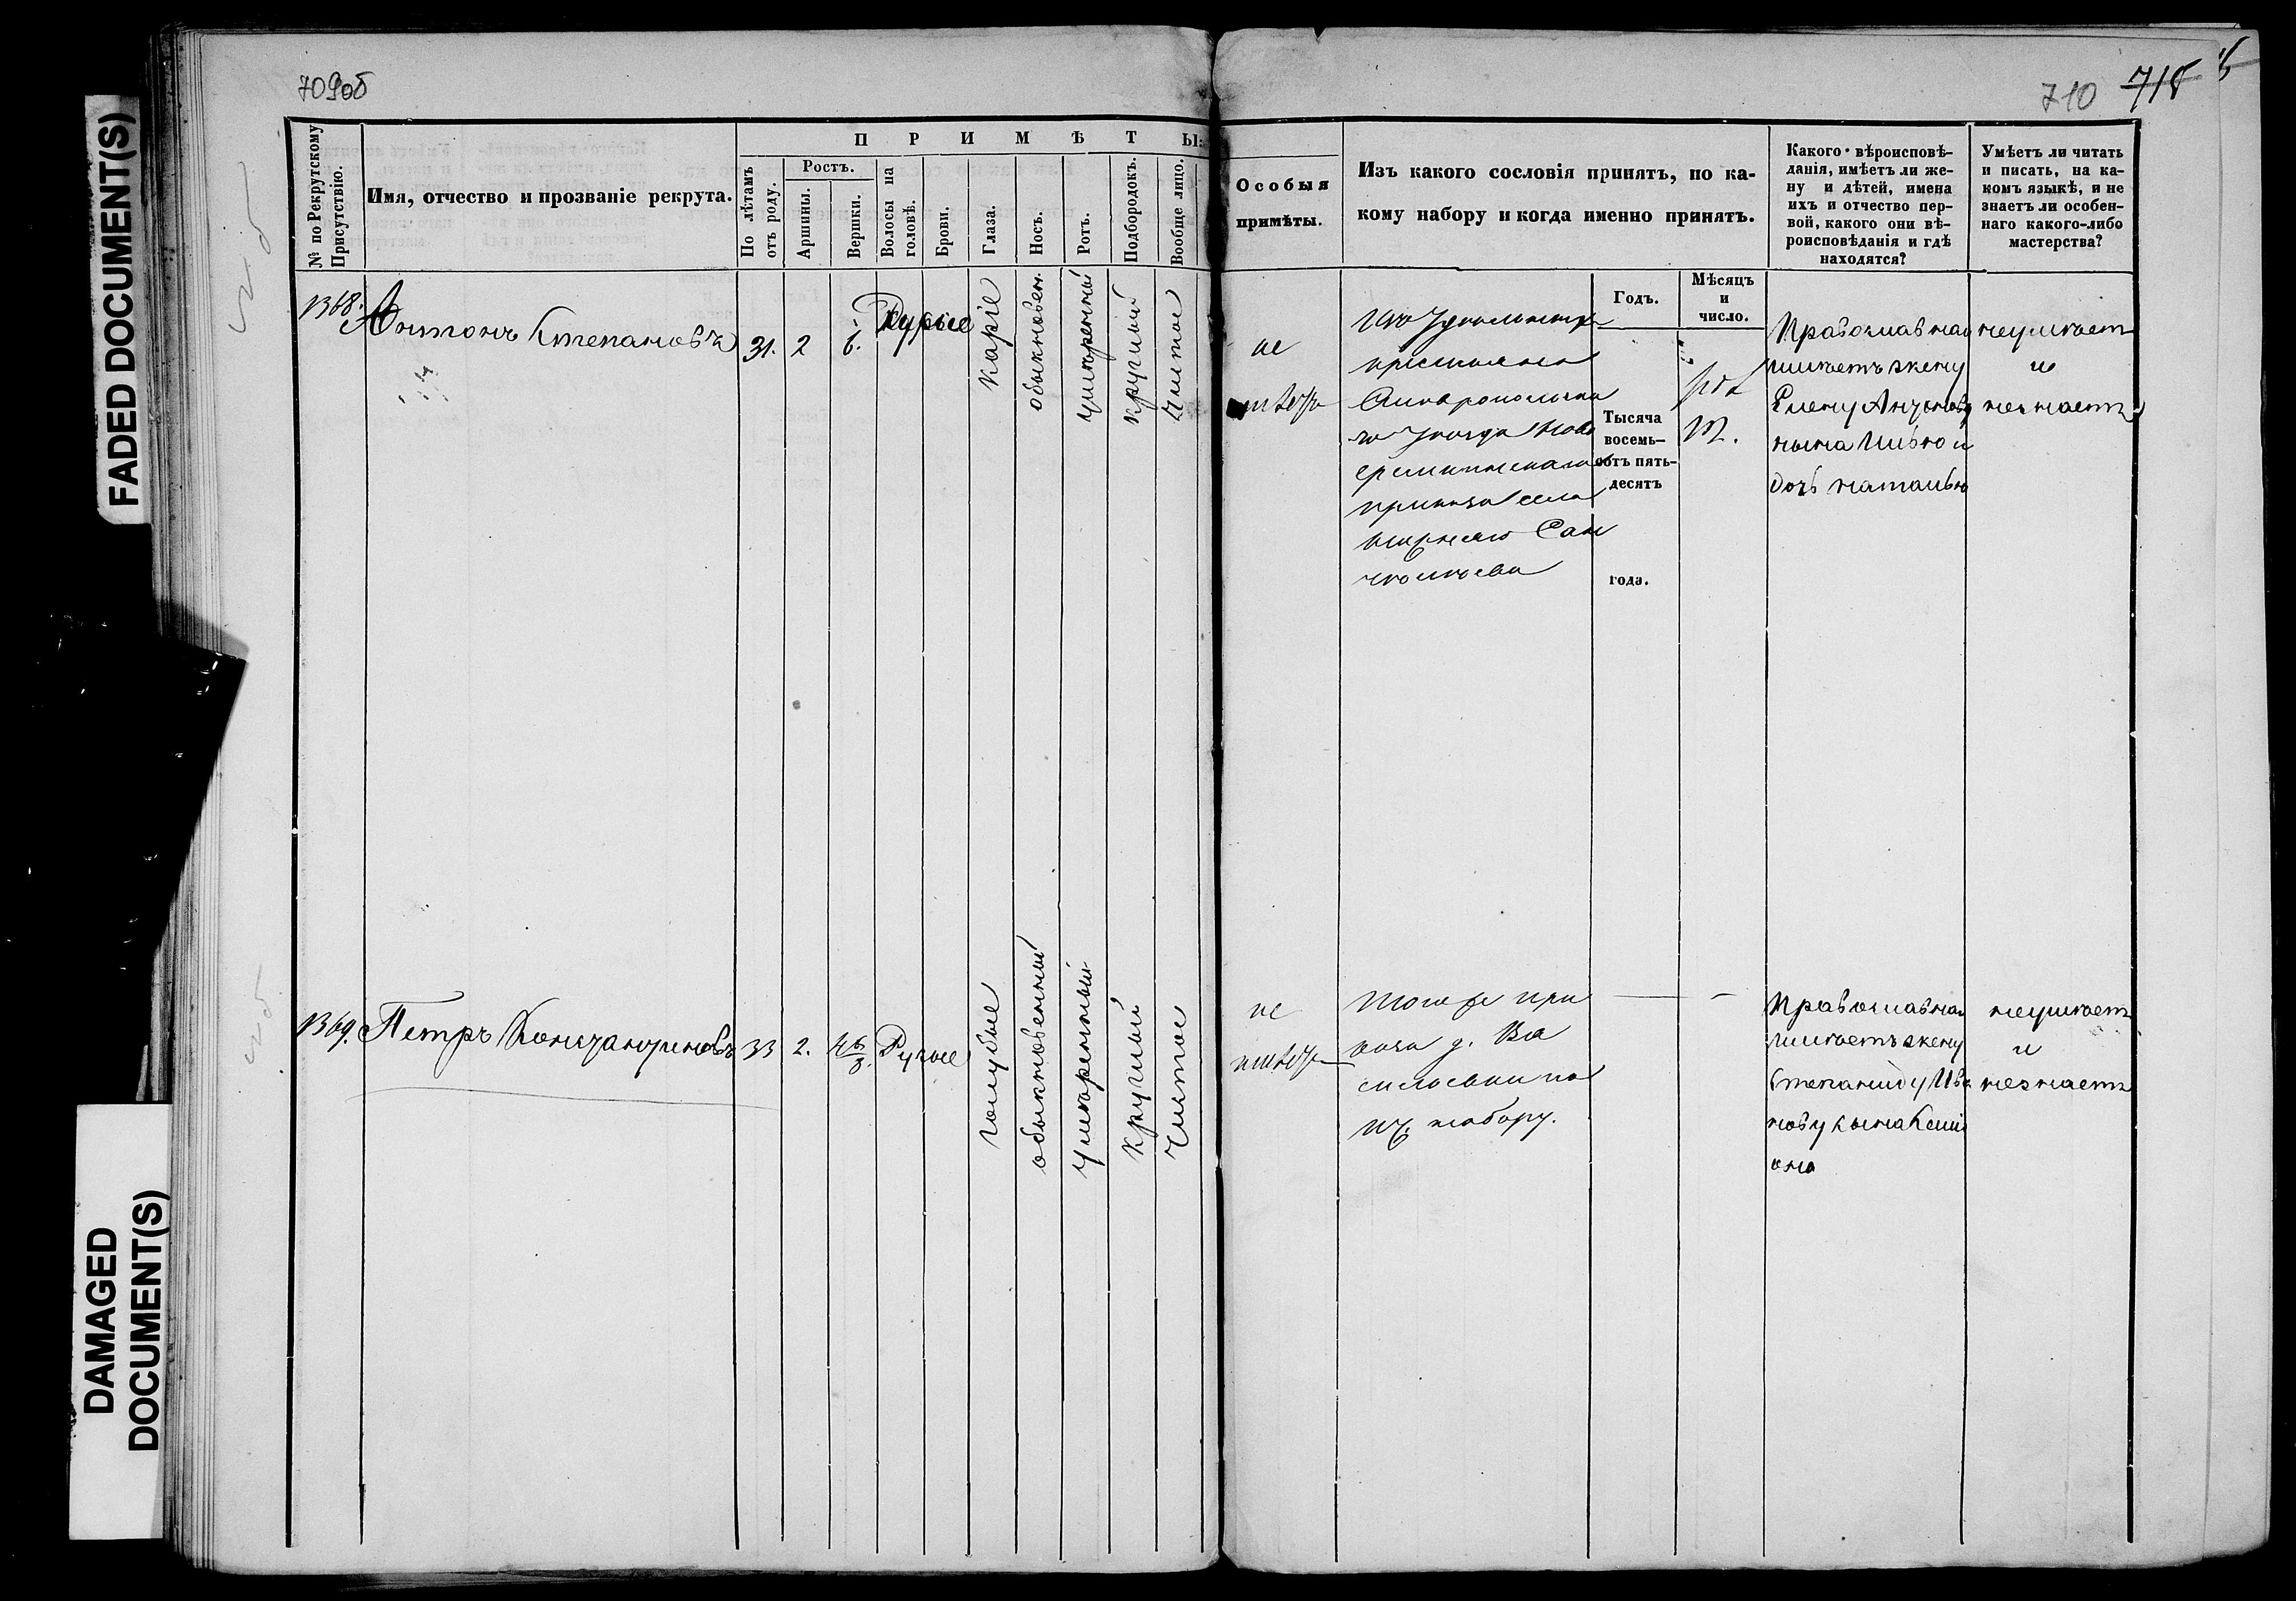 FADED DOCUMENT(S)
DAMAGED
DOCUMENT(S)
709об
710 718
П Р И М Ѣ Т Ы:
№ по Рекрутскому
Присутствію.
Имя, отчество и прозваніе рекрута.
По лѣтамъ
отъ роду.
Ростъ.
Аршины.
Вершки.
Волосы на
головѣ.
Брови.
Глаза.
Носъ.
Ротъ.
Подбородокъ.
Вообще лицо.
Особыя
примѣты.
Изъ какого сословія принятъ, по ка-
кому набору и когда именно принятъ.
Какого вѣроисповѣ-
данія, имѣетъ ли же-
ну и дѣтей, имена
ихъ и отчество пер-
вой, какого они вѣ-
роисповѣданія и гдѣ
находятся?
Умѣетъ ли читать
и писать, на ка-
комъ языкѣ, и не
знаетъ ли особен-
наго какого-либо
мастерства?
Годъ.
Мѣсяцъ
и
число.
1368.
Антонъ Степановъ
31.
2
6.
Русые
каріе
обыкновен.
умѣренный
круглый
чистое
не
имѣетъ
Изъ Удѣльныхъ
крестьянъ
Ставропольска
го уѣзда Ново
приказа села
Сан
Тысяча
восемь-
сотъ пять-
десятъ
года.
Православнаго
имѣетъ жену
Елену
сына Илью и
дочь наталью
неумѣетъ
и
незнаетъ
1369.
Петръ Константиновъ
33
2.
Русые
голубые
обыкновенный
умѣренный
круглый
чистое
не
имѣетъ
Тогоже при
каза д. Ва
сильевки по
набору.
Православнаго
имѣетъ жену
Степаниду Ива
нову сына
неумѣетъ
и
незнаетъ